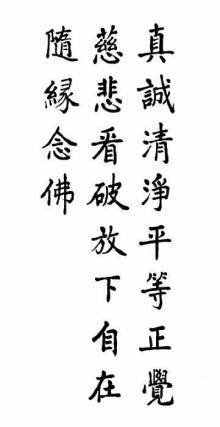 真誠清淨平等正覺
慈悲看破放下自在
隨緣念佛